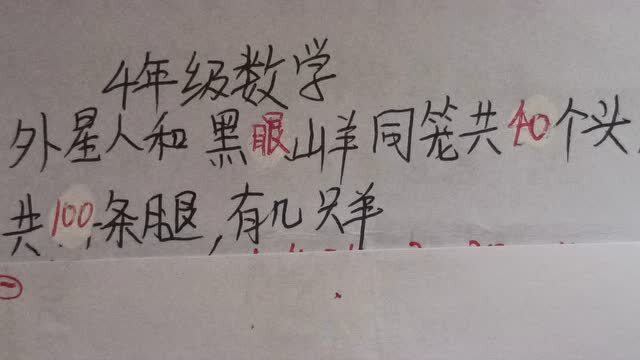 4年级数学
外星人和黑眼山羊同笼共40个头,
共100条腿,有几只羊
一